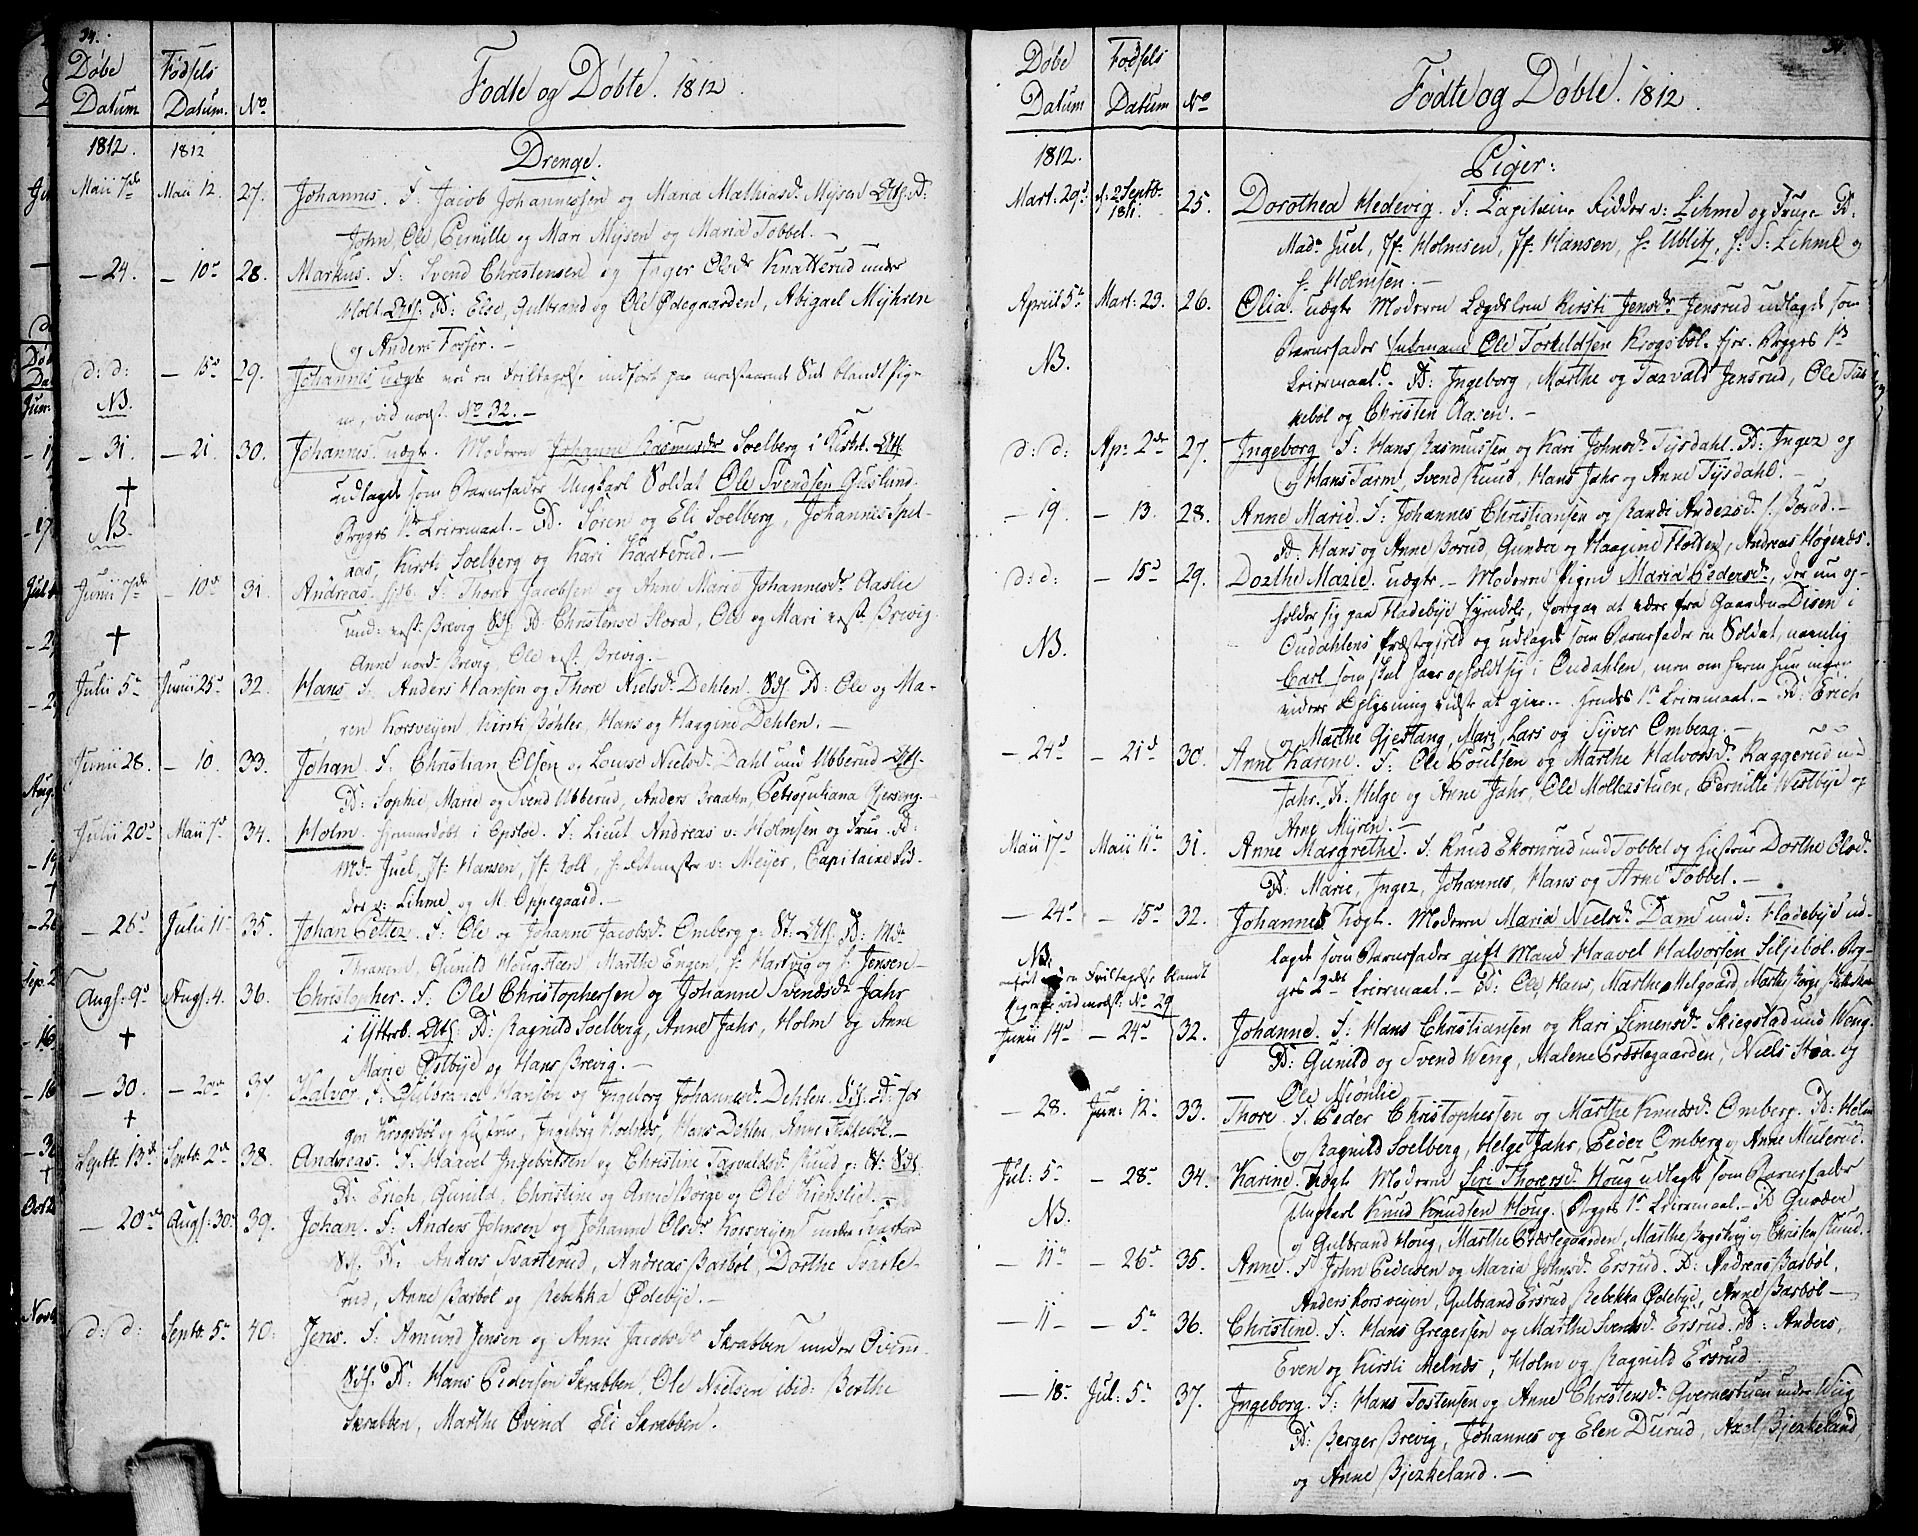 34.
Døbe Fødsels
Datum. Datum. No Fødte og Døbte. 1812.
1812. 1812 Drenge.
Maii 7de Maii 12 27. Johannes. F. Jacob Johannessen og Maria Mathiasd. Mysen D:
John Ole Pernille og Mari Mysen og Maria Tobbel. —
— 24. — 10 28. Markus. F: Svend Christensen og Inger Olsdr Knatterud under
Holt. D: Else, Gulbrand og Ole Ødegaarden, Abigael Myhren
og Anders Fossør. —
d: d: — 15d 29. Johannes uægte ved en Feiltagelse indført paa modstaaende Side blandt Pige-
NB. ne, vid. No 32. —
— 31. — 21. 30. Johannes. uægte. Moderen Johanne Rasmusdr Soelberg i
† udlagt som Barnefader Ungkarl Soldat Ole Svendsen Guslund.
NB. Begges 1ste Leiermaal. — D. Søren og Eli Soelberg, Johannes Spel-
aas, Kirsti Soelberg og Kari Kaaterud. —
Junii 7de — 10de 31. Andreas. F. Thore Jacobsen og Anne Marie Johannesdr Aaslie
† und: vest. Brevig D. Christense Mora, Ole og Mari vest Brevig.
Anne nord. Brevig, Ole vest Brevig. —
Julii 5 Junii 25 32. Hans F. Anders Hansen og Thore Nielsdr Dehlen. D: Ole og Ma-
ren Korsveyen, Kirsti Bøhler, Hans og Haagine Dehlen. —
Junii 28. — 10. 33. Johan F. Christian Olsen og Lovise Nielsdr Dahl und Ubberud
D: Sophie, Marie og Svend Ubberud, Anders Braaten, Petrojuliana —
Julii 20 Maii 7d 34. Holm. hjemmedøbt i Opsloe. F: Lieut Andreas v: Holmsen og Frue D:
Md. Juel, Hansen, Roll, Ritmester v: Meyer, Capitaine Rid-
der v: Lihme og M. Oppegaard. —
— 26 Julii 11 35. Johan Petter. F: Ole og Johanne Jacobsdr Omberg D: Md.
Thranem, Gunild Hougsteen Marthe Engen, Hartvig og Jensen —
Augs: 9 Augs: 4. 36. Christopher. F: Ole Christophersen og Johanne Svendsdr Jahr
† i Ytterb. D: Ragnild Soelberg, Anne Jahr, Holm og Anne
Marie Østbye og Hans Brevig. —
— 30 — 20 37. Halvor. F: Gulbrand Hansen og Ingeborg Johannesdr Dehlen. D:
† Krogsbøl og Hustrue, Ingeborg Hans Dehlen, Anne —
Septb: 13 Septb: 2 38. Andreas. F. Haavel Ingebretsen og Christine Tarvaldsdr Ruud
D: Erich, Gunild, Christine og Anne Børge og Ole Kienslie. —
— 20 Augs: 30 39. Johan. F: Anders Johnsen og Johanne Olsdr Korsveyen under
D: Anders Svarterud, Andreas Barbøl, Dorthe Svarte-
rud, Anne Barbøl og Rebekka Ødebye. —
d: d: Septb: 5 40: Jens. F: Amund Jensen og Anne Jacobsdr Skrabben under Øvem.
D: Hans Pedersen Skrabben, Ole Nielsen ibid: Berthe
Skrabben, Marthe Øvind Eli Skrabben.
34.
Døbe Fødsels
Datum Datum No Fødte og Døbte. 1812.
1812. Piger:
Mart: 29 f: 2 Septb: 1811. 25. Dorothea Hedevig. F: Capitaine Ridder v: Lihme og Frue D:
Mad. Juel, Holmsen, Hansen, Ublitz, Lihme og
Holmsen. —
April 5 Mart. 23. 26. Olia. uægte Moderen Kirsti Jensdr Jensrud udlagt som
NB. Barnefader Ole Torkildsen Krogsbøl. Begges 1ste
Leiermaal. D: Ingeborg, Marthe og Tarvald Jensrud, Ole
og Christen —
d: d: Ap: 2de 27. Ingeborg F: Hans Rasmussen og Kari Johnsdr Tysdahl. D: Inger og
og Hans Svend Ruud, Hans Jahr og Anne Tysdahl. —
— 19. — 13. 28. Anne Marie. F: Johannes Christiansen og Randi Andersdr Borud. —
D: Hans og Anne Borud, Gunder og Haagine Flotten, Andreas Høgenæs.
d: d: — 15 29. Dorthe Marie. uægte. — Moderen Pigen Maria Pedersdr, der nu op-
holder sig paa Fladebye foregav at være fra Gaarden Disen i
NB. Oudahlens Præstegield og udlagde som Barnefader en Soldat, navnlig
Carl som skal have opholdt sig i Oudahlen, men om hvem hun ingen
videre Oplysning vidste at give. — hendes 1ste Leiermaal. — D: Erich
og Marthe Gjestang, Mari, Lars og Syver Omberg. —
— 24 — 21 30. Anne Karine. F: Ole Poulsen og Marthe Halvorsdr Raggerud und
Jahr. D. Helge og Anne Jahr, Ole Molterstuen, Pernille Westbye og
Arne Myren. —
Maii 17 Maii 11 31. Anne Margrethe. F. Knud Ekornrud und Tobbel og Hustrue Dorthe Olsdr
D: Marie, Inger, Johannes, Hans og Arne Tobbel. —
— 24 — 15 32. Johannes uægt. Moderen Maria Nielsdr Dam und: Fladebye ud-
NB. lagt som Barnefader gift Mand Haavel Halvorsen Siljebøl. Beg-
anført ved en Feiltagelse blandt ges 2det Leiermaal — D: Ole, Hans, Marthe Melgaard, Marthe Børge
Pigerne vid. No 29
Junii 14 — 24 32. Johanne. F: Hans Christiansen og Kari Simensdr Skiegstad und Weng.
D: Gunild og Svend Weng, Malene Præstegaarden, Niels Støa og
Ole Niønlie
— 28. Jun: 12 33. Thore. F: Peder Christophersen og Marthe Knudsdr Omberg. D: Holm
og Ragnild Soelberg, Helge Jahr, Peder Omberg og Anne Mulerud.
Jul: 5 — 28 34. Karine. uægt Moderen Siri Thoresdr Houg udlagt som Barnefader
NB. Ungkarl Knud Knudsen Houg. Begges 1ste Leiermaal. — D Gunder
og Gulbrand Houg, Marthe Præstegaarden, Marthe og Christen Ruud.
— 11 — 26 35. Anne. F John Pedersen og Maria Johnsdr Ersrud. D: Andreas Barbøl,
Anders Korsveyen, Gulbrand Ersrud, Rebekka Ødebye, Anne Barbøl —
— 11 — — 5 36. Christine. F: Hans Gregersen og Marthe Svendsdr Ersrud. D: Anders,
Even og Kirsti Melnæs, Holm og Ragnild Ersrud
— 18 Jul: 5 37. Ingeborg. F: Hans Tostensen og Anne Christensdr Qvernestuen under Wiig
D: Berger Brevig, Johannes og Elen Durud, Axel Bjerkeland,
og Anne Bjerkeland. —